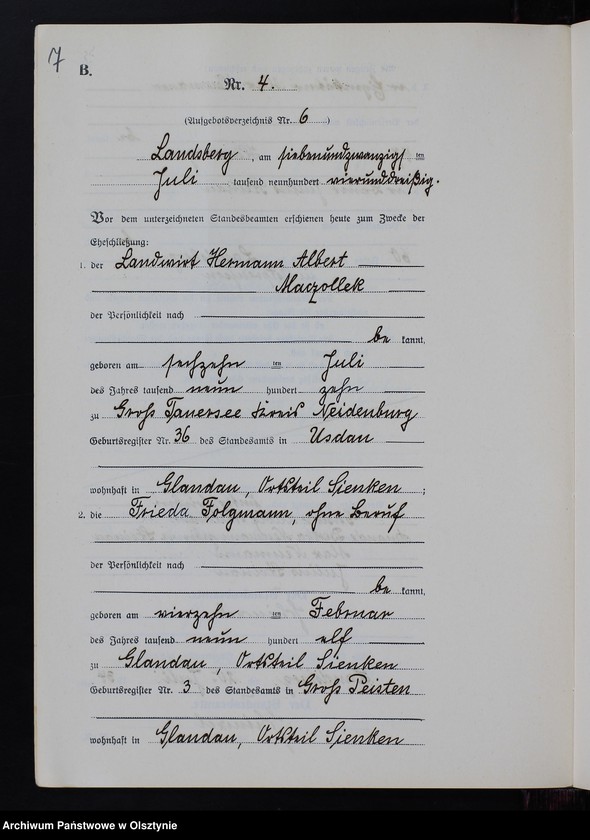 7
B.
Nr. 4.
(Aufgebotsverzeichnis Nr. 6)
Landsberg, am siebenundzwanzigsten
Juli tausend neunhundert vierunddreißig.
Vor dem unterzeichneten Standesbeamten erschienen heute zum Zwecke der
Eheschließung:
1. der Landwirt Hermann Albert
Maczollek
der Persönlichkeit nach
be kannt,
geboren am sechzehn ten Juli
des Jahres tausend neun hundert zehn
zu Groß Tauersee Kreis Neidenburg
Geburtsregister Nr. 36 des Standesamts in Usdau
wohnhaft in Glandau, Ortsteil Sienken;
2. die Frieda Folgmann, ohne Beruf
der Persönlichkeit nach
be kannt,
geboren am vierzehn ten Februar
des Jahres tausend neun hundert elf
zu Glandau, Ortsteil Sienken
Geburtsregister Nr. 3 des Standesamts in Groß Peisten
wohnhaft in Glandau, Ortsteil Sienken
Archiwum Państwowe w Olsztynie